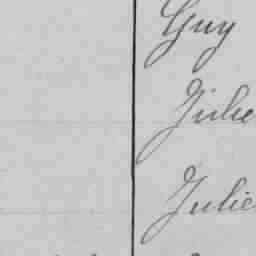 Guy
Julie
Julie